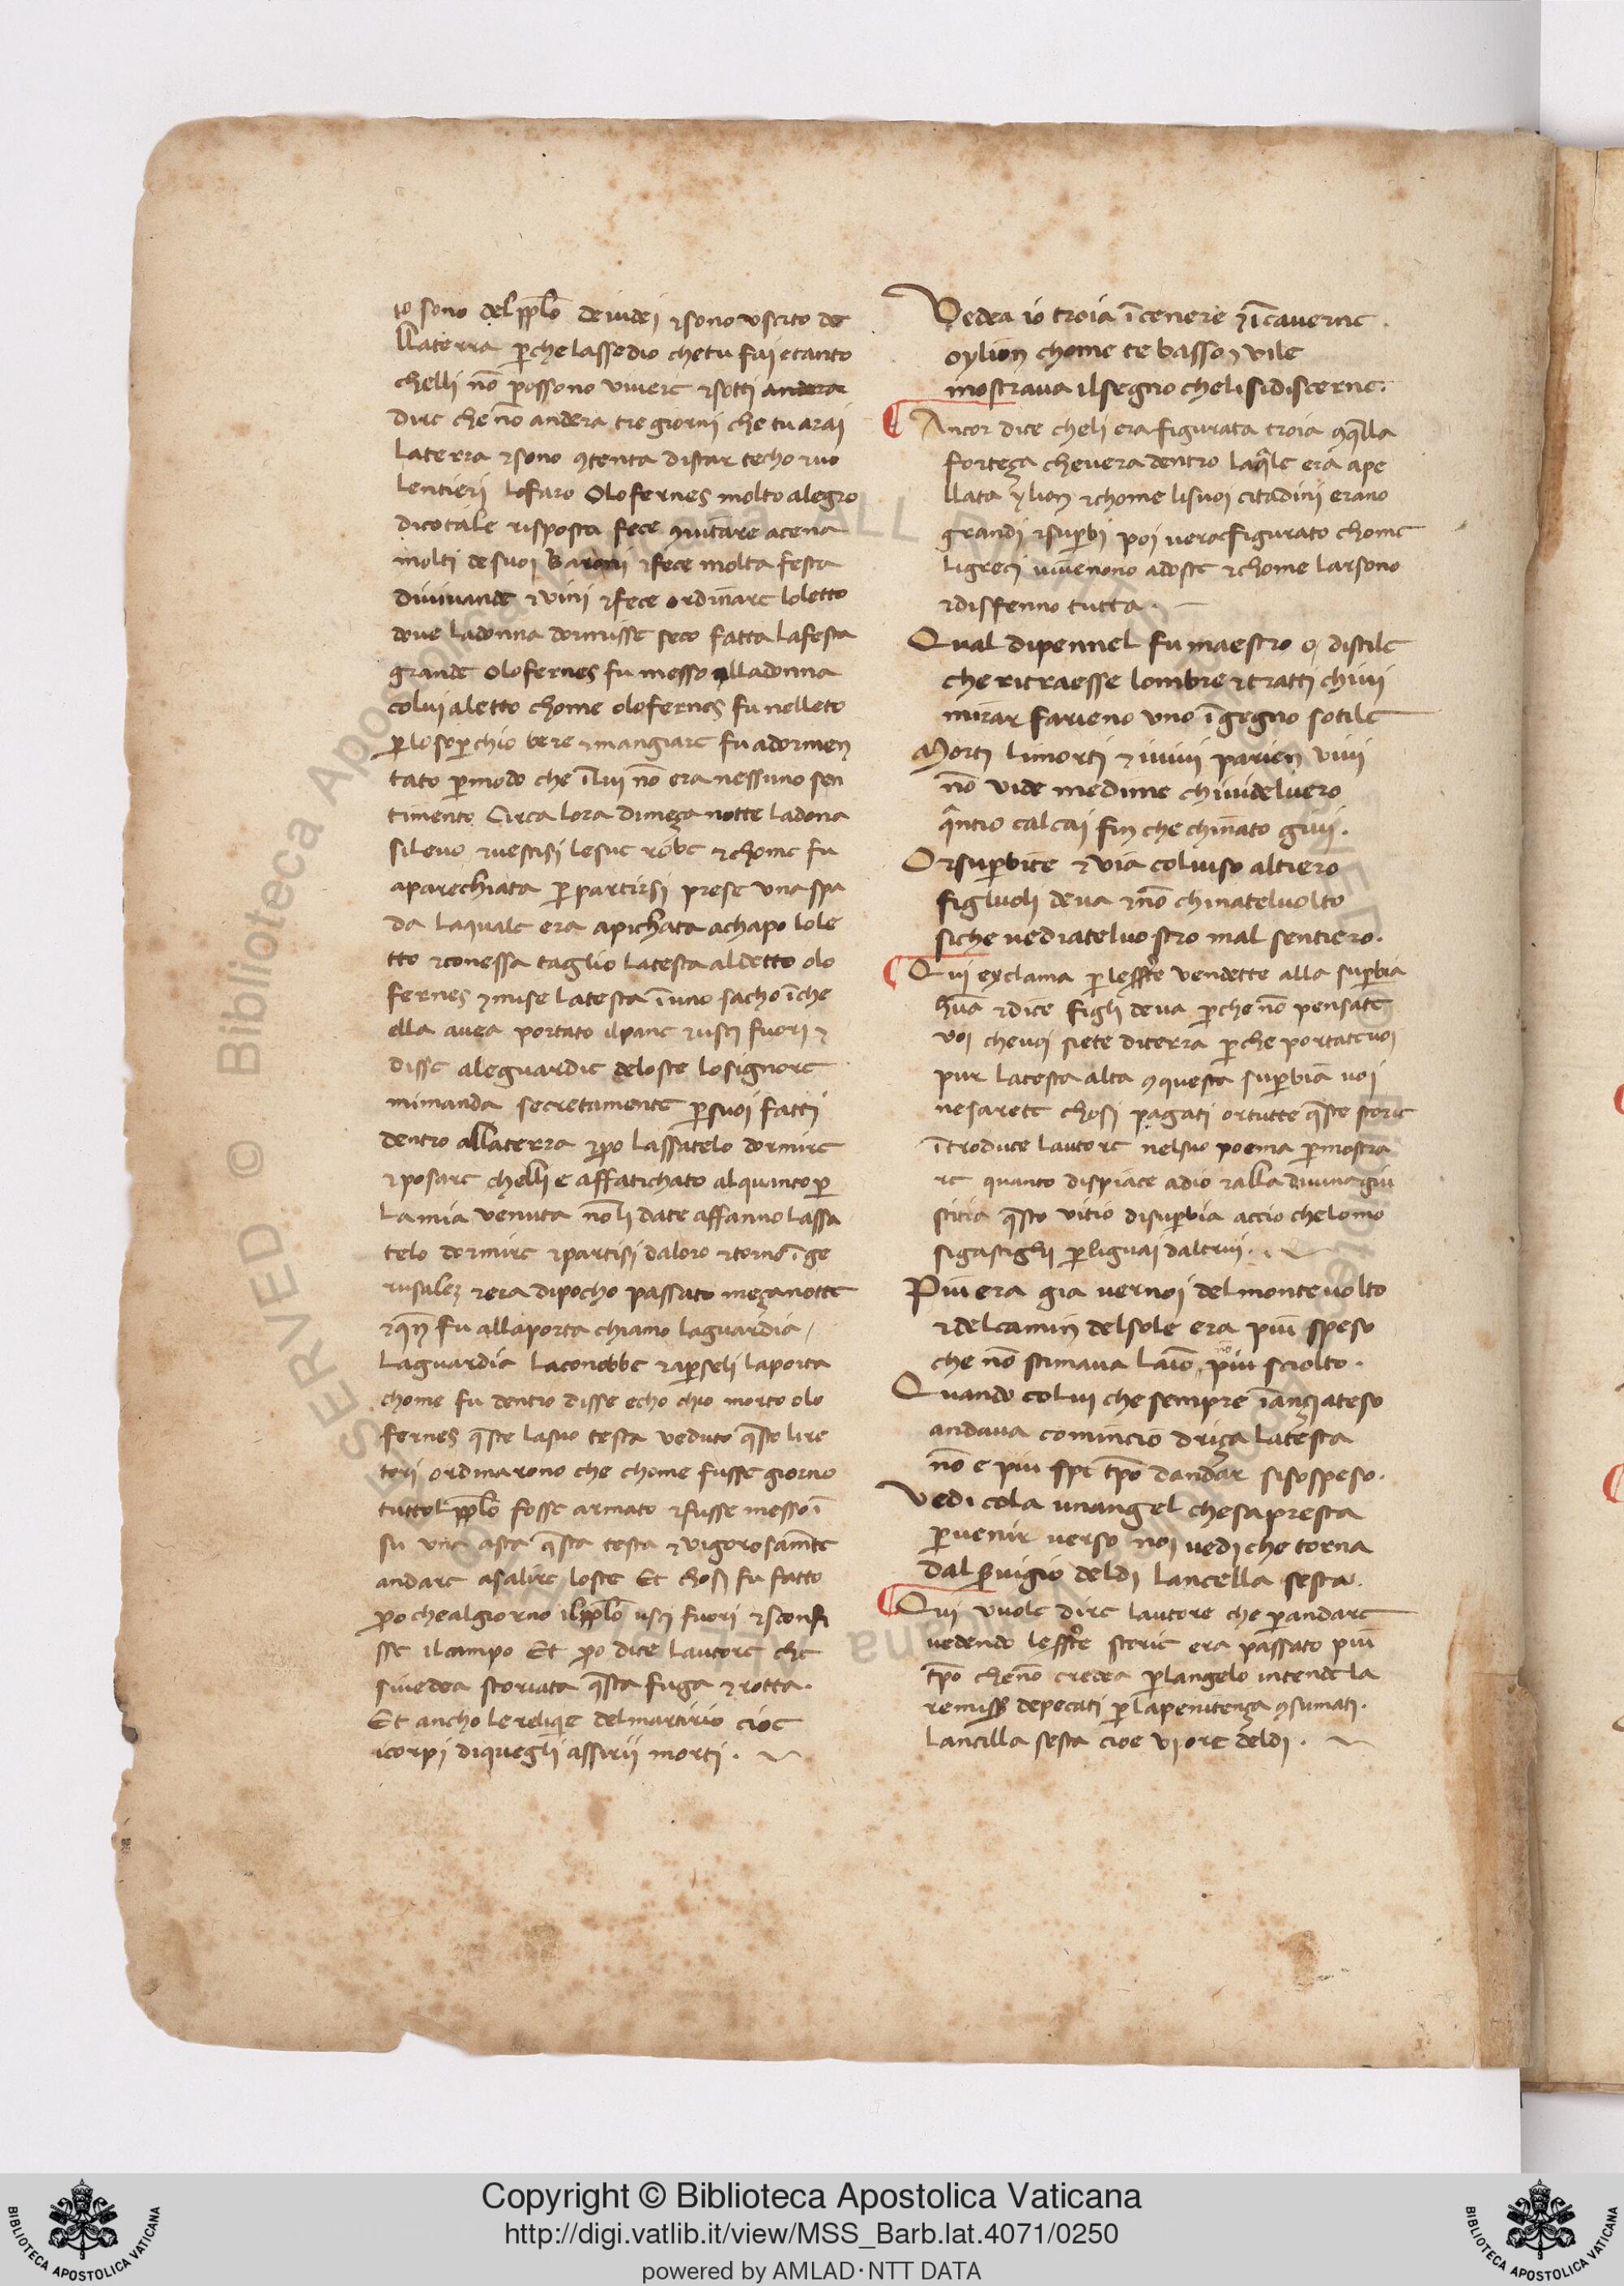 Io sono del ppl̅o de iudei ⁊ sono uscito de
lla terra p̱che lassedio che tu fai e tanto
chelli no̅ possono viuere ⁊ sotti andera
dire che no̅ andera tre giorni che tu arai
la terra ⁊ sono ꝯtenta distar techo ⁊ uo
lentieri lo faro Olofernes molto alegro
dicotale risposta fece ꝯuitare acena
molti de suoi Baroni ⁊ fece molta festa
diuiuande ⁊ vini ⁊ fece ordinare loletto
doue ladonna dormisse seco fatta lafesta
grande Olofernes fu messo alladonna
colui aletto chome olofernes fu nelleto
p̱ lo sop̱chio bere ⁊ mangiare fu adormen
tato p̱ modo che i̅ lui no̅ era nessuno sen
timento Circa lora dimeza notte ladona
sileuo ⁊ uestisi lesue robe ⁊ chome fu
aparechiata p̱ partirsi prese una spa
da laquale era apichata achapo lole
tto ⁊ conessa taglio latesta aldetto olo
fernes ⁊ mise latesta i̅ uno sacho i̅ che
ella auea portato ilpane ⁊ usci fuori ⁊
disse aleguardie deloste losignore
mimanda secretamente p̱ suoi fatti
dentro allaterra ⁊ p̱o lassatelo dormire
⁊ posare chelli e affatichato alquinto p̱
la mia venuta no̅ li date affanno lassa
telo dormire ⁊ partisi daloro ⁊ torno i̅ ge
rusalez ⁊ era dipocho passato mezanotte
⁊ qn̅ fu allaporta chiamo laguardia /
laguardia laconobbe ⁊ ap̱seli laporta
chome fu dentro disse echo chio morto olo
fernes q̅ste lasuo testa veduto q̅sto lire
tori ordinarono che chome fusse giorno
tuttol ppl̅o fosse armato ⁊ fusse messo i̅
su una asta q̅sta testa ⁊ vigorosam̅te
andare asalire loste Et chosi fu fatto
p̱o che al giorno il ppl̅o usci fuori ⁊ sconfi
sse il campo Et p̱o dice lautore che
siuedea storiata q̅sta fuga ⁊ rotta .
Et ancho le reliqie del martirio cioe
icorpi diquegli assirii morti .
Vedea io troia i̅ cenere ⁊ i̅ cauerne .
o ylion chome te basso ⁊ vile
mostraua il segno che li si discerne .
Ancor dice cheli era figurata troia ꝯ q̅lla
forteza cheuera dentro laq̅le era ape
llata ylion ⁊ chome lisuoi citadini erano
grandi ⁊ sup̱bi poi uera figurato chome
ligreci viuenono adoste ⁊ chome larsono
⁊ disfenno tutta .
Qual dipennel fu maestro o distile
che ritraesse lombre ⁊ tratti chiui
mirar farieno uno i̅gegno sotile
Morti li morti ⁊ i uiui parien viui
no̅ vide me di me chi uide luero
q̅ntio calcai fin che chinato giui .
Or sup̱bite ⁊ via col uiso altiero
figluoli deua ⁊ no̅ chinateluolto
siche uediateluostro mal sentiero .
Qui exclama p̱ le sscte̅ vendette alla sup̱bia
hu̅a ⁊ dice figli deua p̱che no̅ pensate
voi cheuoi siete diterra p̱che portateuoi
pur latesta alta ꝯ questa sup̱bia uoi
nesarete chosi pagati or tutte q̅ste storie
i̅troduce lautore nelsuo poema p̱ mostra
re quanto dispiace adio ⁊ alla diuina giu
sticia q̅sto vitio disup̱bia accio chelomo
sigastighi p̱ liguai daltrui .
Piu era gia per noi del monte uolto
⁊ del camin del sole era piu speso
che no̅ stimaua laio̅ no̅ piu sciolto .
Quando colui che sempre i̅anzi ateso
andaua comincio driza latesta
no̅ e piu tp̅o dandar si sospeso .
Vedi cola unangel che sapresta
p̱ uenir verso noi vedi che torna
dal s̱uigio deldi lancella sesta .
Qui vuole dire lautore che p̱ andare
uedendo le sscte̅ storie era passato piu
tp̅o cheno̅ credea p̱ langelo intende la
remiss̅ depecati p̱ la penitenza ꝯsumati .
lancilla sesta cioe vi ore deldi .
© Biblioteca Apostolica Vaticana ALL RIGHTS RESERVED
BIBLIOTECA APOSTOLICA VATICANA
Copyright © Biblioteca Apostolica Vaticana
http://digi.vatlib.it/view/MSS_Barb.lat.4071/0250
powered by AMLAD·NTT DATA
BIBLIOTECA APOSTOLICA VATICANA